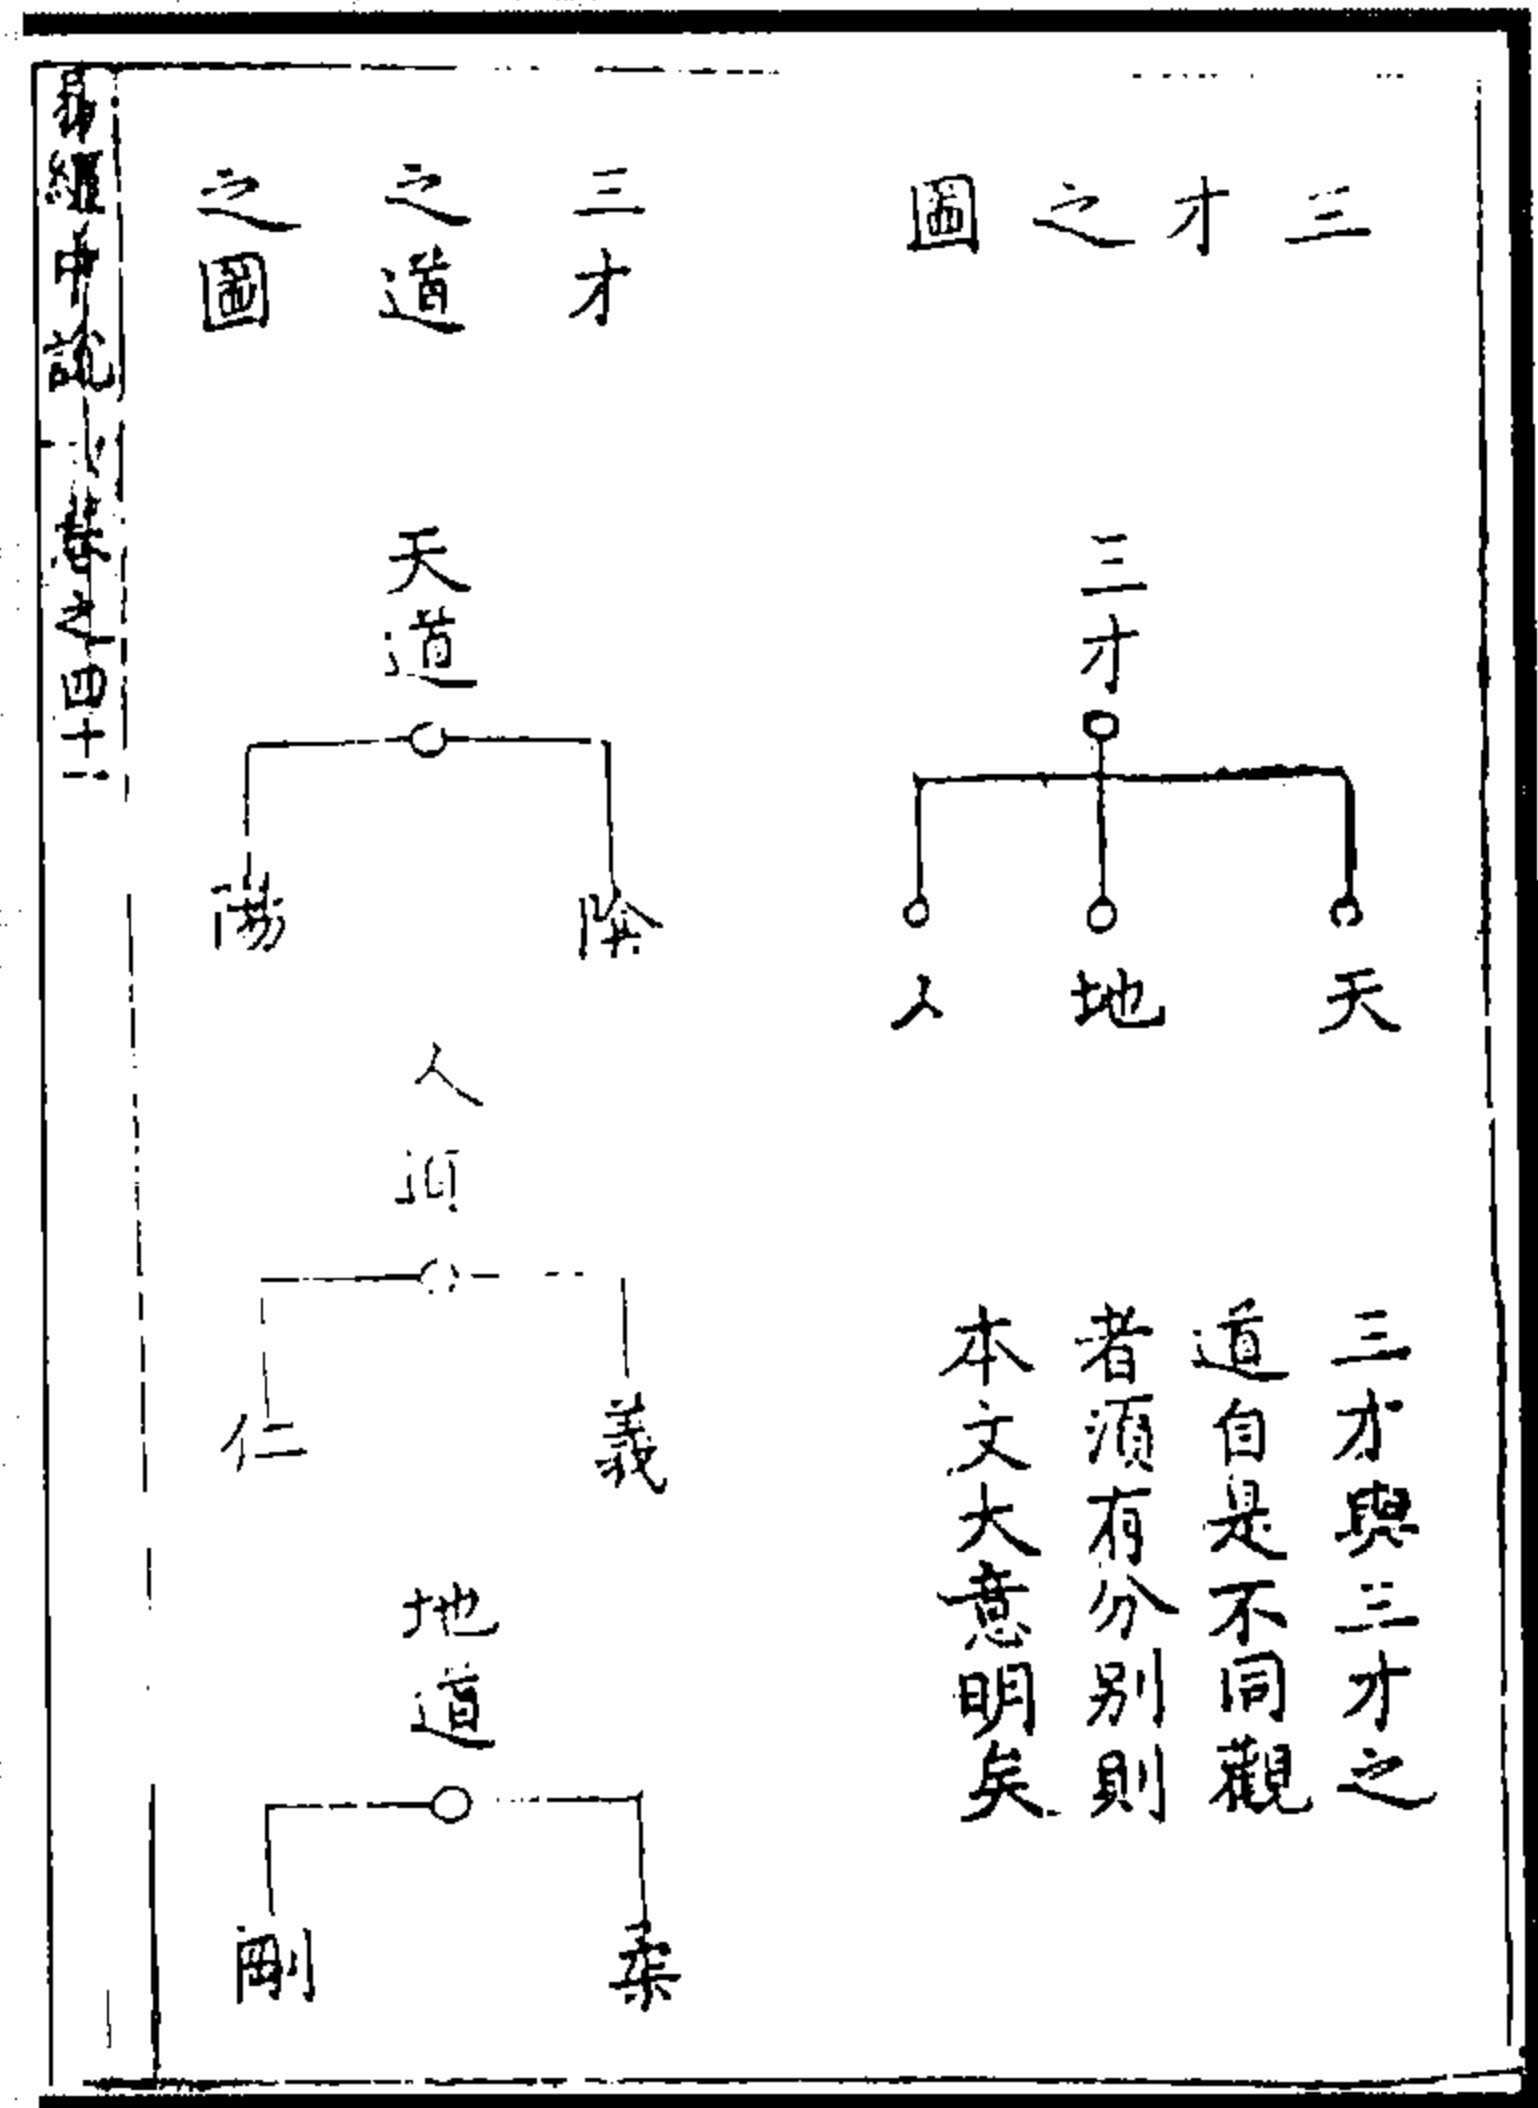 三才之圖
三才
天
地
人
三才與三才之
道自是不同觀
者須有分别則
本文大意明矣
三才
之道
之圖
天道
陰
陽
人道
義
仁
地道
柔
剛
易經中說
四十